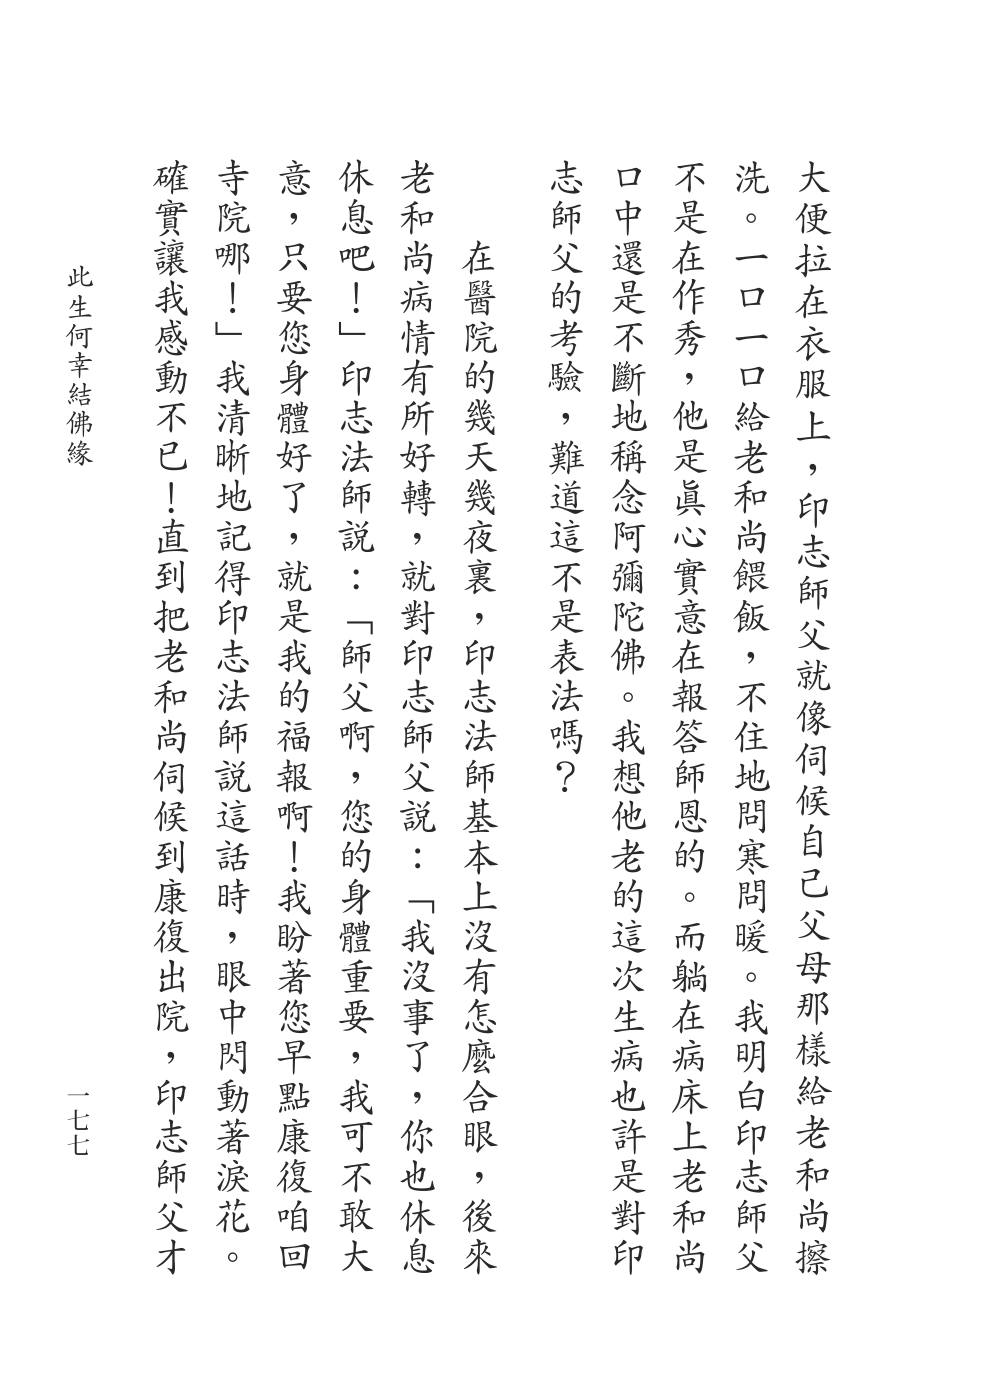 大便拉在衣服上，印志師父就像伺候自己父母那樣給老和尚擦
洗。一口一口給老和尚餵飯，不住地問寒問暖。我明白印志師父
不是在作秀，他是眞心實意在報答師恩的。而躺在病床上老和尚
口中還是不斷地稱念阿彌陀佛。我想他老的這次生病也許是對印
志師父的考驗，難道這不是表法嗎？
在醫院的幾天幾夜裏，印志法師基本上沒有怎麼合眼，後來
老和尚病情有所好轉，就對印志師父説：「我沒事了，你也休息
休息吧！」印志法師説：「師父啊，您的身體重要，我可不敢大
意，只要您身體好了，就是我的福報啊！我盼著您早點康復咱回
寺院哪！」我清晰地記得印志法師説這話時，眼中閃動著淚花。
確實讓我感動不已！直到把老和尚伺候到康復出院，印志師父才
此生何幸結佛緣
一七七